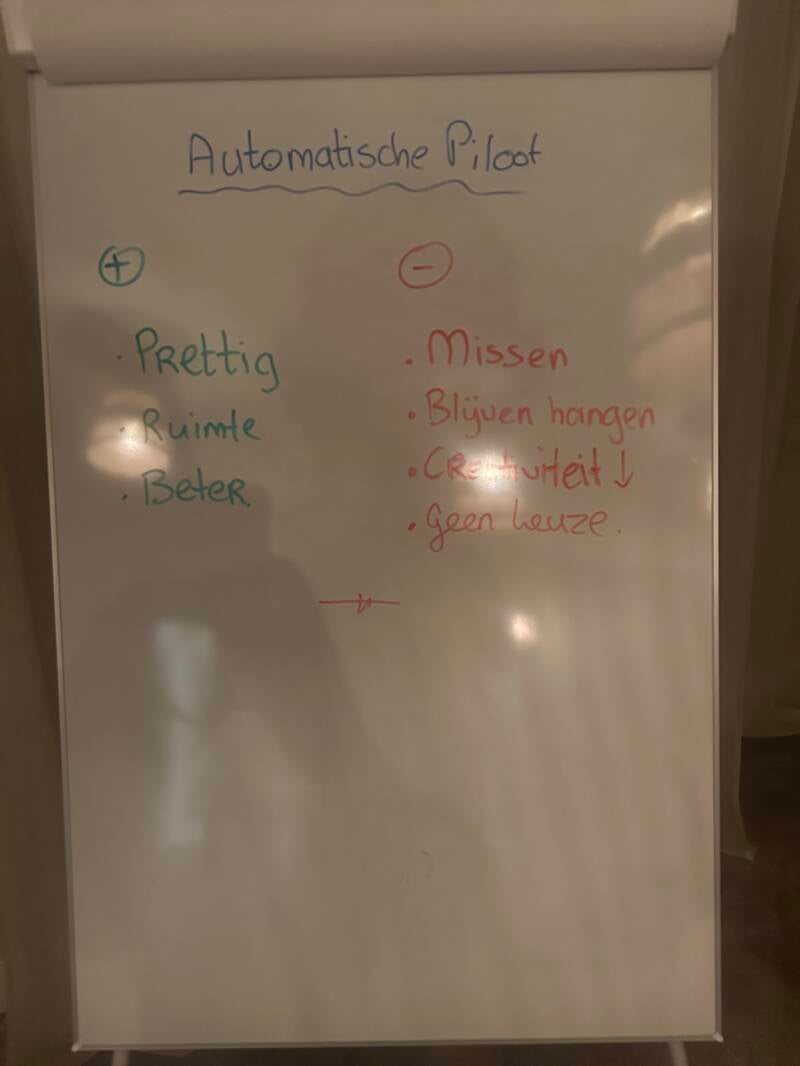 Automatische Piloot
+
· Prettig
· Ruimte
· Beter
-
· Missen
· Blijven hangen
· Creativiteit ↓
· Geen keuze.